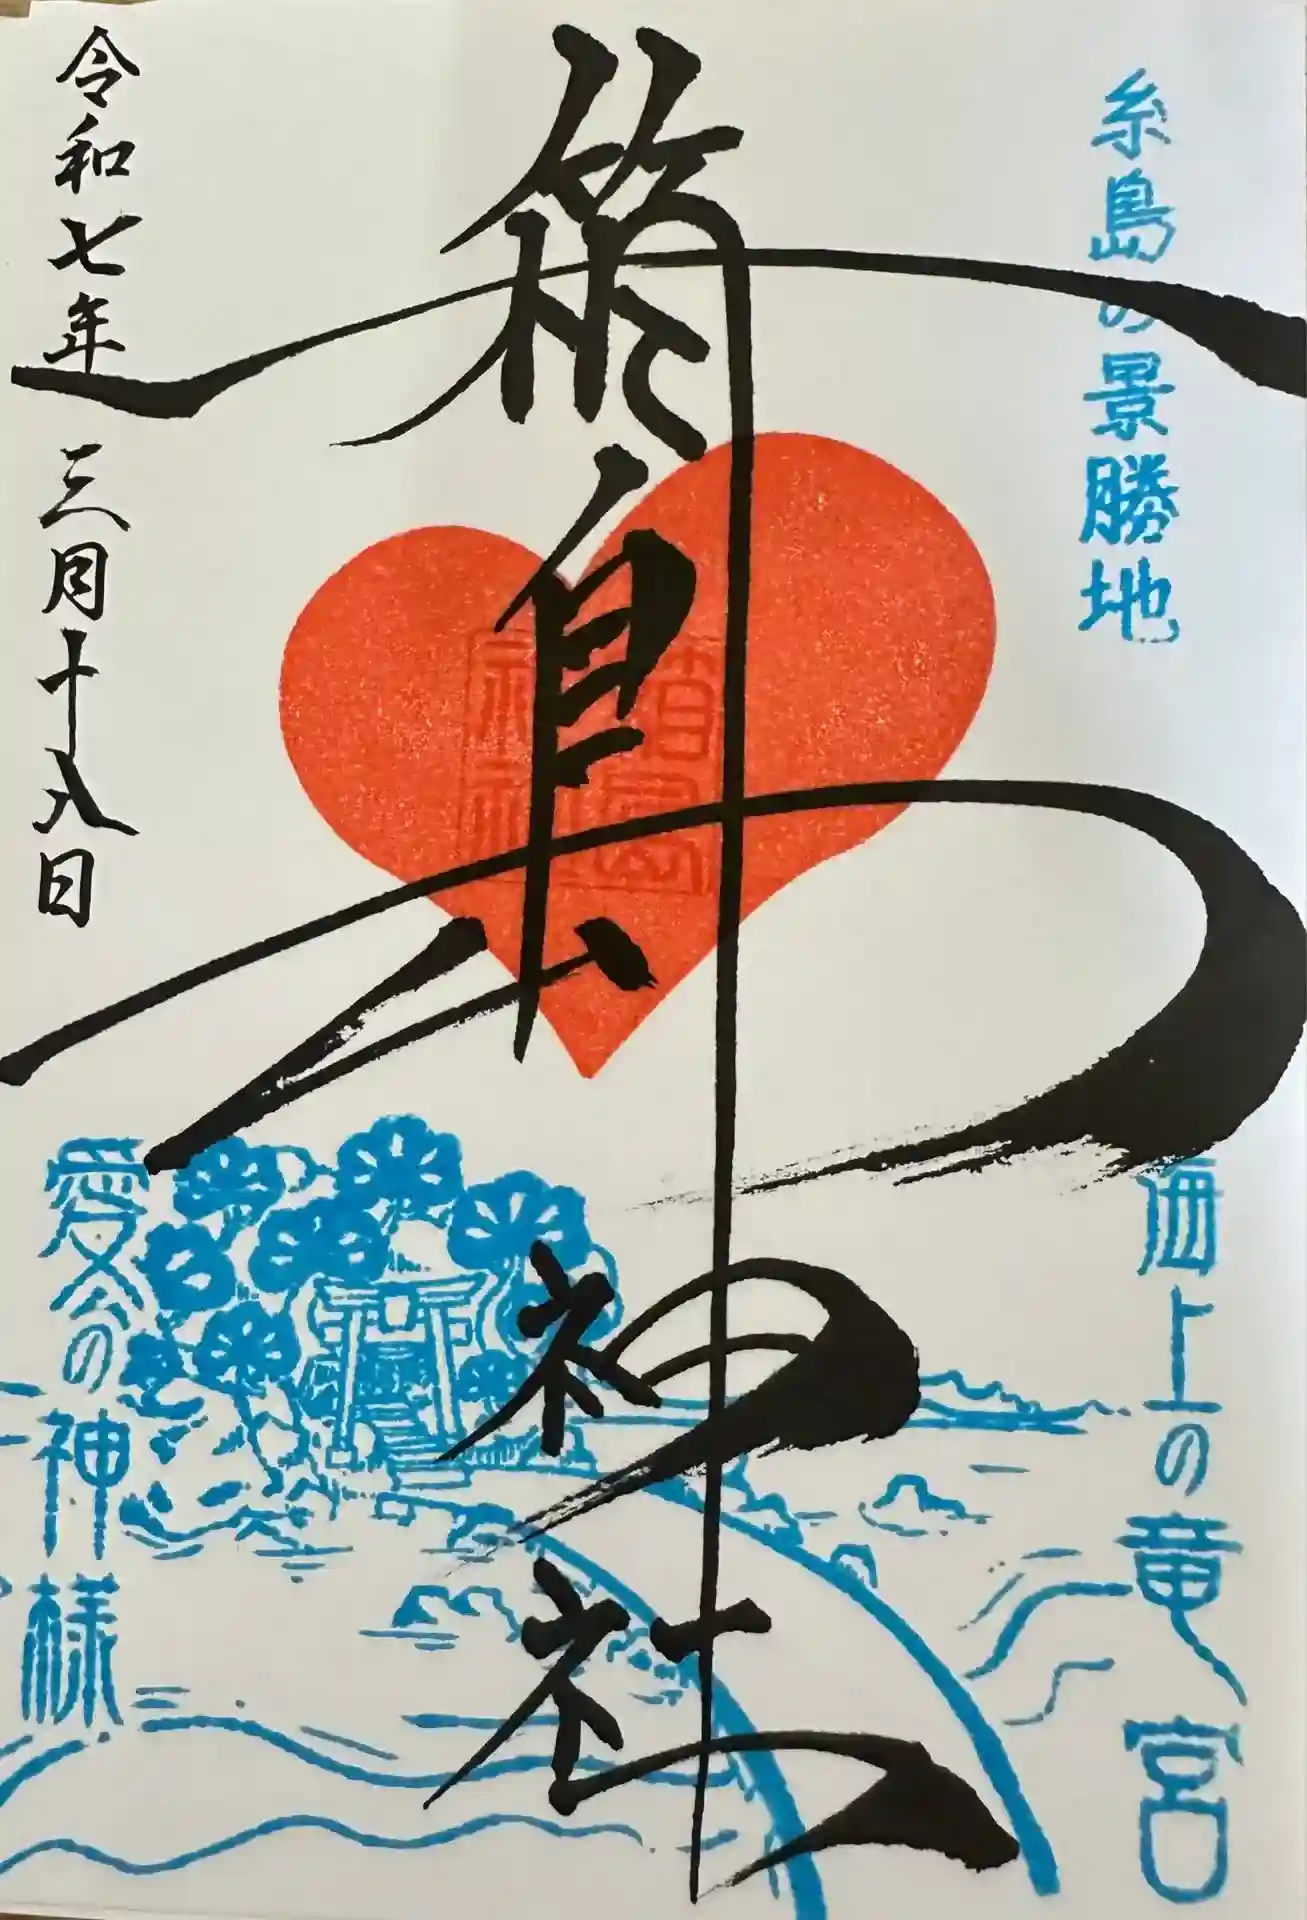 糸島の景勝地
海上の竜宮
箱島神社
箱島
神社
愛分の神様
令和七年三月十八日